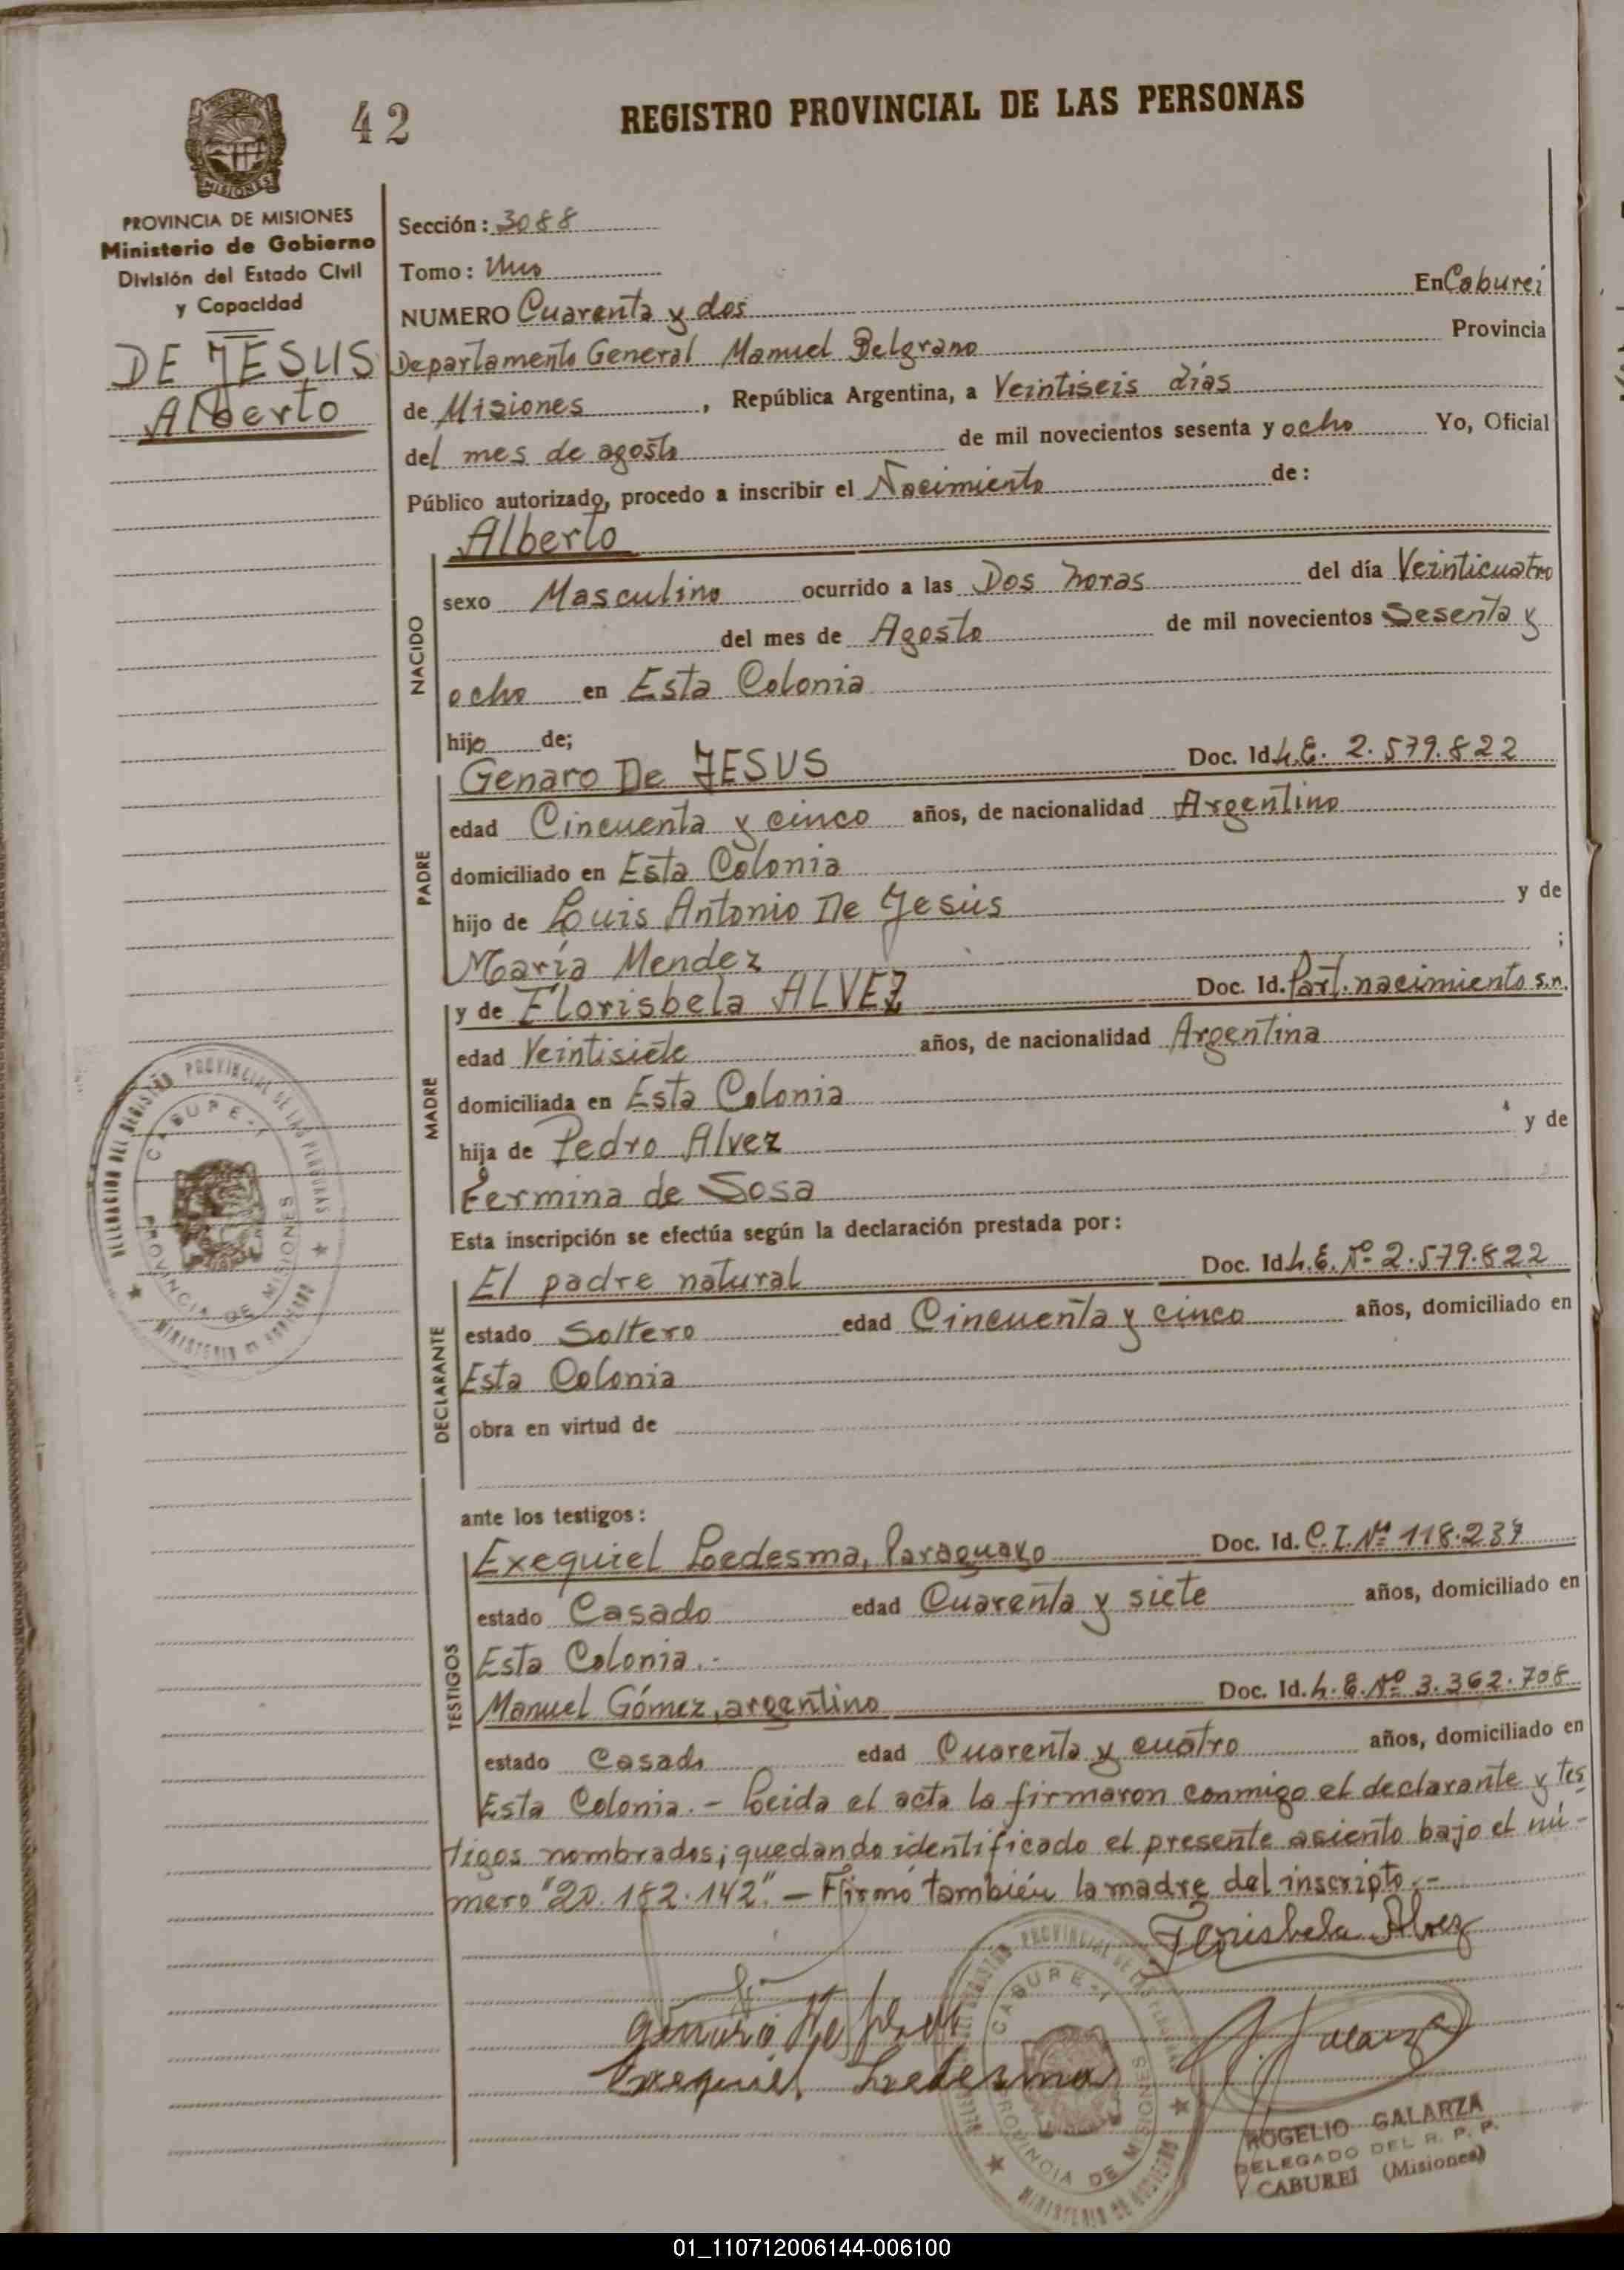 42
REGISTRO PROVINCIAL DE LAS PERSONAS
MISIONES
PROVINCIA DE MISIONES
Ministerio de Gobierno
División del Estado Civil
y Capacidad
DE JESUS
Alberto
Sección: 3088
Tomo: Uno
NUMERO Cuarenta y dos En Caburei
Departamento General Manuel Belgrano Provincia
de Misiones, República Argentina, a Veintiseis días
del mes de agosto de mil novecientos sesenta y ocho Yo, Oficial
Público autorizado, procedo a inscribir el Nacimiento de:
Alberto
NACIDO
sexo Masculino ocurrido a las Dos horas del día Veinticuatro
del mes de Agosto de mil novecientos Sesenta y
ocho en Esta Colonia
hijo de;
PADRE
Genaro De JESUS Doc. Id. L.E. 2.579.822
edad Cincuenta y cinco años, de nacionalidad Argentino
domiciliado en Esta Colonia
hijo de Luis Antonio De Jesús y de
María Mendez ;
MADRE
y de Florisbela ALVEZ Doc. Id. Part. nacimiento s.n.
edad Veintisiete años, de nacionalidad Argentina
domiciliada en Esta Colonia
hija de Pedro Alvez y de
Fermina de Sosa
Esta inscripción se efectúa según la declaración prestada por:
DECLARANTE
El padre natural Doc. Id. L.E. Nº 2.579.822
estado Soltero edad Cincuenta y cinco años, domiciliado en
Esta Colonia
obra en virtud de
ante los testigos:
TESTIGOS
Exequiel Ledesma, Paraguayo Doc. Id. C.I. Nº 118.237
estado Casado edad Cuarenta y siete años, domiciliado en
Esta Colonia.-
Manuel Gómez, argentino Doc. Id. L.E. Nº 3.362.708
estado Casado edad Cuarenta y cuatro años, domiciliado en
Esta Colonia.- Leida el acta la firmaron conmigo el declarante y tes
tigos nombrados; quedando identificado el presente asiento bajo el nú-
mero "20.182.142".- Firmó también la madre del inscripto.-
Florisbela Alvez
Exequiel Ledesma
DELEGACION DEL REGISTRO PROVINCIAL DE LAS PERSONAS
CABURE-I
PROVINCIA DE MISIONES
MINISTERIO DE GOBIERNO
ROGELIO GALARZA
DELEGADO DEL R. P. P.
CABUREÍ (Misiones)
01_110712006144-006100